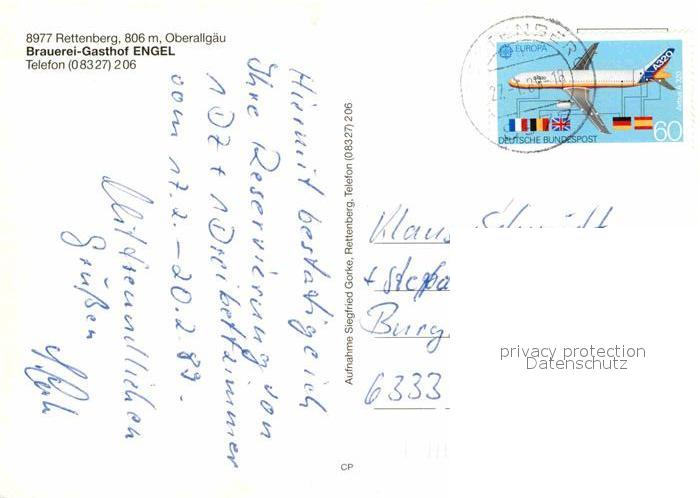 8977 Rettenberg, 806 m, Oberallgäu
Brauerei-Gasthof ENGEL
Telefon (0 83 27) 2 06
Hiermit bestätige ich
Ihre Reservierung von
1 DZ + 1 Dreibettzimmer
vom 17.2. – 20.2.89.
Mit freundlichen
Grüßen
Aufnahme Siegfried Gorke, Rettenberg, Telefon (0 83 27) 2 06
CP
EUROPA
A320
Airbus A 320
60
DEUTSCHE BUNDESPOST
Klaus Schmidt
+ Stepha
Burg
6333
privacy protection
Datenschutz